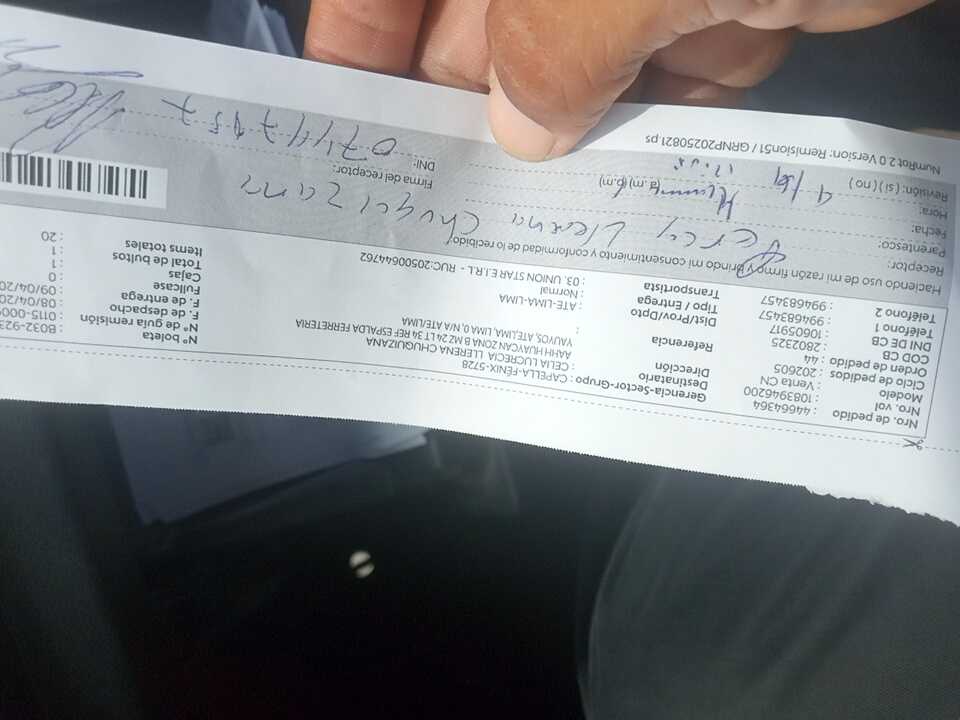 Nro. de pedido : 44664364
Nro. vol : 1083946200
Modelo : Venta CN
Ciclo de pedidos : 202605
Orden de pedido : 44
COD CB : 2802325
DNI DE CB : 10605917
Teléfono 1 : 994683457
Teléfono 2 : 994683457
Gerencia-Sector-Grupo : CAPELLA-FENIX-5728
Destinatario : CELIA LUCRECIA LLERENA CHUGUIZANA
Dirección : AAHH HUAYCAN ZONA B MZ 24 LT 34 REF ESPALDA FERRETERIA
YAUYOS, ATE,LIMA, LIMA,0, N/A, 0 ATE/LIMA
Referencia :
Dist/Prov/Dpto : ATE-LIMA-LIMA
Tipo / Entrega : Normal
Transportista : 03. UNION STAR E.I.R.L. - RUC:20500644762
Nº boleta : B032-923
Nº de guía remisión : 0115-000
F. de despacho : 08/04/20
F. de entrega : 09/04/20
Fullcase : 0
Cajas : 1
Total de bultos : 1
Items totales : 20
Haciendo uso de mi razón firmo y brindo mi consentimiento y conformidad de lo recibido:
Receptor: Percy Llerena Chuquizana
Parentesco:
Fecha:
Hora: (a.m) (p.m)
Revisión: ( si ) ( no )
Firma del receptor:
DNI: 07447457
NumRot 2.0 Version: Remision51 / GRNP20250821.ps